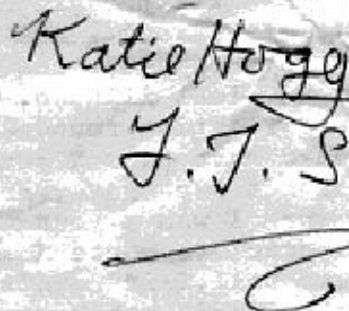 Katie Hogg
J.J. S